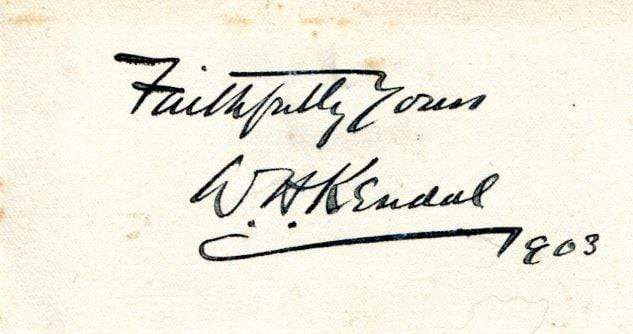 Faithfully Yours
W.H.Kendal
1903